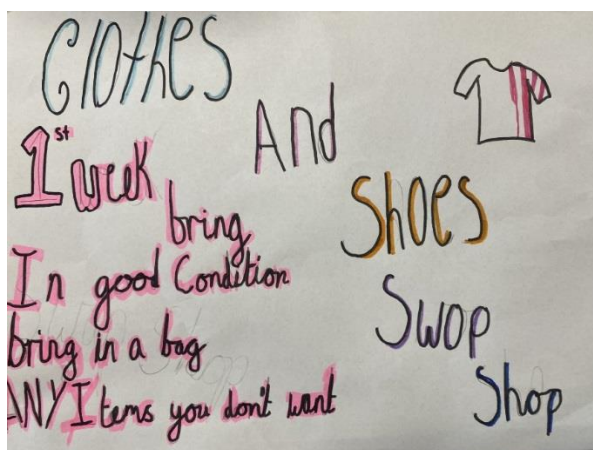 Clothes
And
Shoes
Swop
Shop
1st week
bring
In good Condition
bring in a bag
ANY Items you don't want